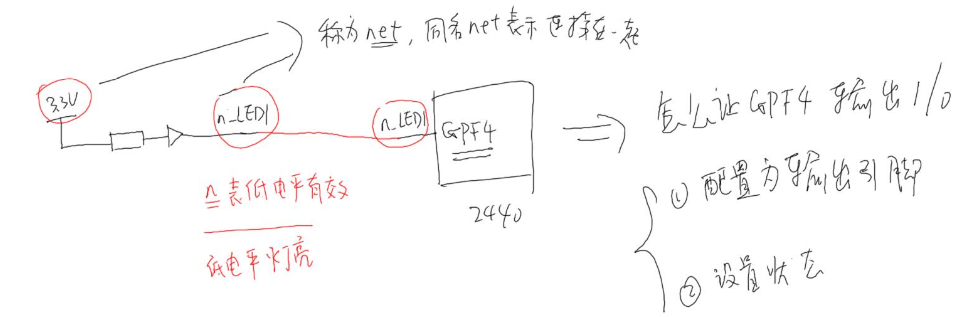 称为net，同名net表示连接在一起
3.3V
n_LED1
n_LED1
GPF4
2440
n表低电平有效
低电平灯亮
怎么让GPF4输出1/0
① 配置为输出引脚
② 设置状态